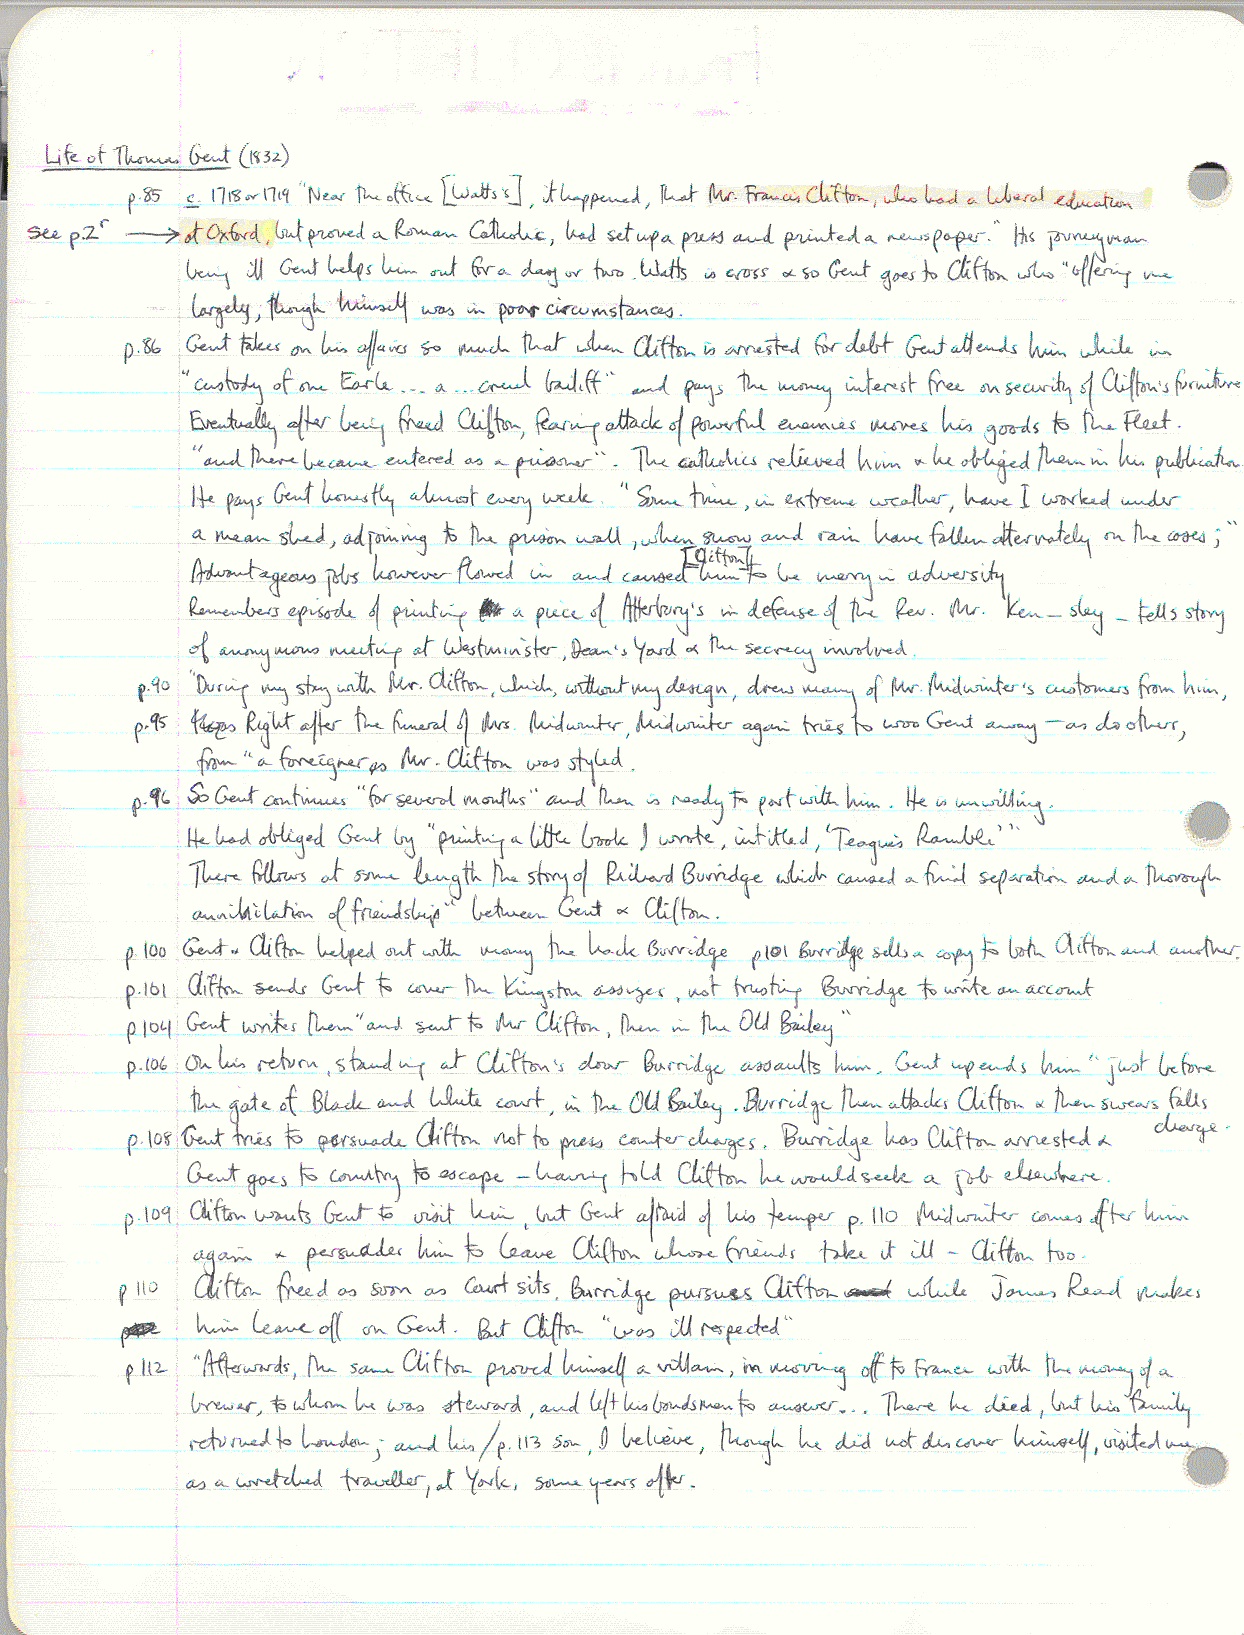 Life of Thomas Gent (1832)
p.85 c. 1718 or 1719 "Near the office [Watts's], it happened, that Mr. Francis Clifton, who had a liberal education
see p.2r → at Oxford, but proved a Roman Catholic, had set up a press and printed a newspaper." His journeyman
being ill Gent helps him out for a day or two. Watts is cross & so Gent goes to Clifton who "offering me
largely, though himself was in poor circumstances.
p.86 Gent takes on his affairs so much that when Clifton is arrested for debt Gent attends him while in
"custody of one Earle ... a ... cruel bailiff" and pays the money interest free on security of Clifton's furniture
Eventually after being freed Clifton, fearing attack of powerful enemies moves his goods to the Fleet.
"and there became entered as a prisoner". The catholics relieved him & he obliged them in his publication
He pays Gent honestly almost every week. "Some time, in extreme weather, have I worked under
a mean shed, adjoining to the prison wall, when snow and rain have fallen alternately on the cases;"
[Clifton]
Advantageous jobs however flowed in and caused him to be merry in adversity
Remembers episode of printing a piece of Atterbury's in defense of the Rev. Mr. Ken—sley — tells story
of anonymous meeting at Westminster, Dean's Yard & the secrecy involved.
p.90 "During my stay with Mr. Clifton, which, without my design, drew many of Mr. Midwinter's customers from him,
p.95 Right after the funeral of Mrs. Midwinter, Midwinter again tries to woo Gent away — as do others,
from "a foreigner as Mr. Clifton was styled.
p.96 So Gent continues "for several months" and then is ready to part with him. He is unwilling.
He had obliged Gent by "printing a little book I wrote, intitled, 'Teague's Ramble'"
There follows at some length the story of Richard Burridge which caused a final separation and a thorough
annihilation of friendship" between Gent & Clifton.
p.100 Gent & Clifton helped out with money the hack Burridge p101 Burridge sells a copy to both Clifton and another.
p.101 Clifton sends Gent to cover the Kingston assizes, not trusting Burridge to write an account
p104 Gent writes them "and sent to Mr Clifton, then in the Old Bailey"
p.106 On his return, standing at Clifton's door Burridge assaults him. Gent upends him "just before
the gate of Black and White court, in the Old Bailey. Burridge then attacks Clifton & then swears falls
charge.
p.108 Gent tries to persuade Clifton not to press counter charges. Burridge has Clifton arrested &
Gent goes to country to escape — having told Clifton he would seek a job elsewhere.
p.109 Clifton wants Gent to visit him, but Gent afraid of his temper p.110 Midwinter comes after him
again & persuades him to leave Clifton whose friends take it ill — Clifton too.
p110 Clifton freed as soon as Court sits. Burridge pursues Clifton while James Read makes
him leave off on Gent. But Clifton "was ill respected"
p112 "Afterwards, the same Clifton proved himself a villain, in moving off to France with the money of a
brewer, to whom he was steward, and left his bondsmen to answer... There he died, but his family
returned to London; and his/p.113 son, I believe, though he did not discover himself, visited me
as a wretched traveller, at York, some years after.